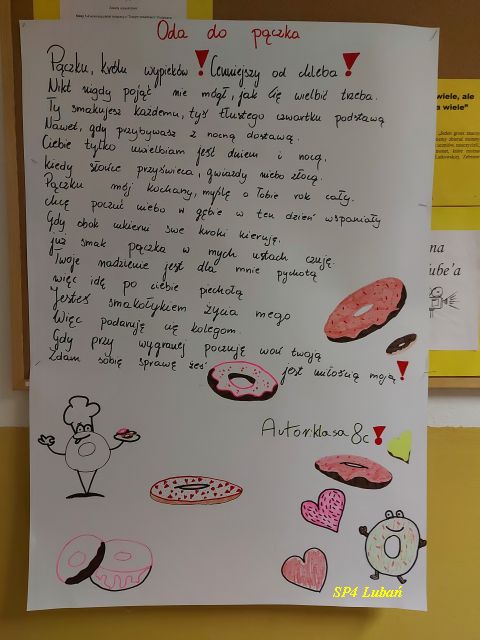 Oda do pączka
Pączku, królu wypieków! Cenniejszy od chleba!
Nikt nigdy pojąć nie mógł, jak Cię wielbić trzeba.
Ty smakujesz każdemu, tyś tłustego czwartku podstawą
Nawet, gdy przybywasz z nocną dostawą.
Ciebie tylko uwielbiam jest dniem i nocą,
kiedy słońce przyświeca, gwiazdy niebo złocą.
Pączku mój kochany, myślę o Tobie rok cały.
chcę poczuć niebo w gębie w ten dzień wspaniały
Gdy obok cukierni swe kroki kieruję.
już smak pączka w mych ustach czuję.
Twoje nadzienie jest dla mnie pychotą
więc idę po ciebie piechotą
Jesteś smakołykiem życia mego
Więc podaruję cię kolegom.
Gdy przy wygranej poczuję woń twoją
Zdam sobie sprawę żeś jest miłością moją!
Autor: klasa 8c!
SP4 Lubań
wiele, ale
a wiele"
na
ube'a